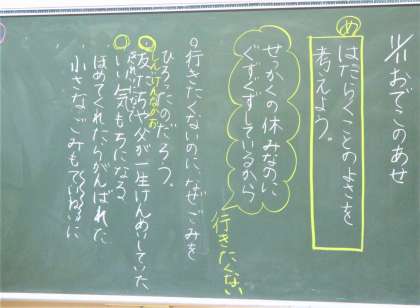 11/11 おでこのあせ
め
はたらくことのよさを
考えよう。
せっかくの休みなのに
ぐずぐずしているから
行きたくない
行きたくないのに、なぜごみを
ひろったのだろう。
しんけんなかお
友だちや父が一生けんめいしていた
いい気もちになる
ほめてくれたらがんばれた
小さなごみもていねいに